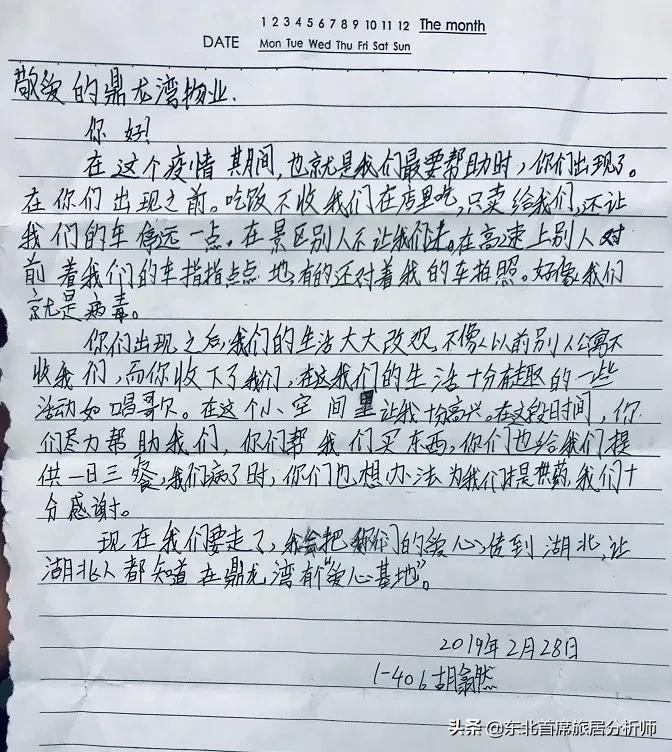 1 2 3 4 5 6 7 8 9 10 11 12 The month
DATE Mon Tue Wed Thu Fri Sat Sun
敬爱的鼎龙湾物业.
你好!
在这个疫情期间,也就是我们最要帮助时,你们出现了。
在你们出现之前。吃饭不收我们在店里吃,只卖给我们,还让
我们的车停远一点。在景区别人不让我们来。在高速上别人对
前着我们的车指指点点地,有的还对着我的车拍照。好像我们
就是病毒。
你们出现之后,我们的生活大大改观,不像以前别人公寓不
收我们,而你收下了我们,在这我们的生活十分有趣的一些
活动如唱歌欠。在这个小空间里让我十分高兴。在这段日时间,你
们尽力帮助我们,你们帮我们买东西,你们也给我们提
供一日三餐,我们病了时,你们也想办法为我们提供药,我们十
分感谢。
现在我们要走了,我会把你们的爱心,传到湖北,让
湖北人都知道在鼎龙湾有“爱心基地”。
2019年2月28日
1-406胡翕然
头条 @东北首席旅居分析师